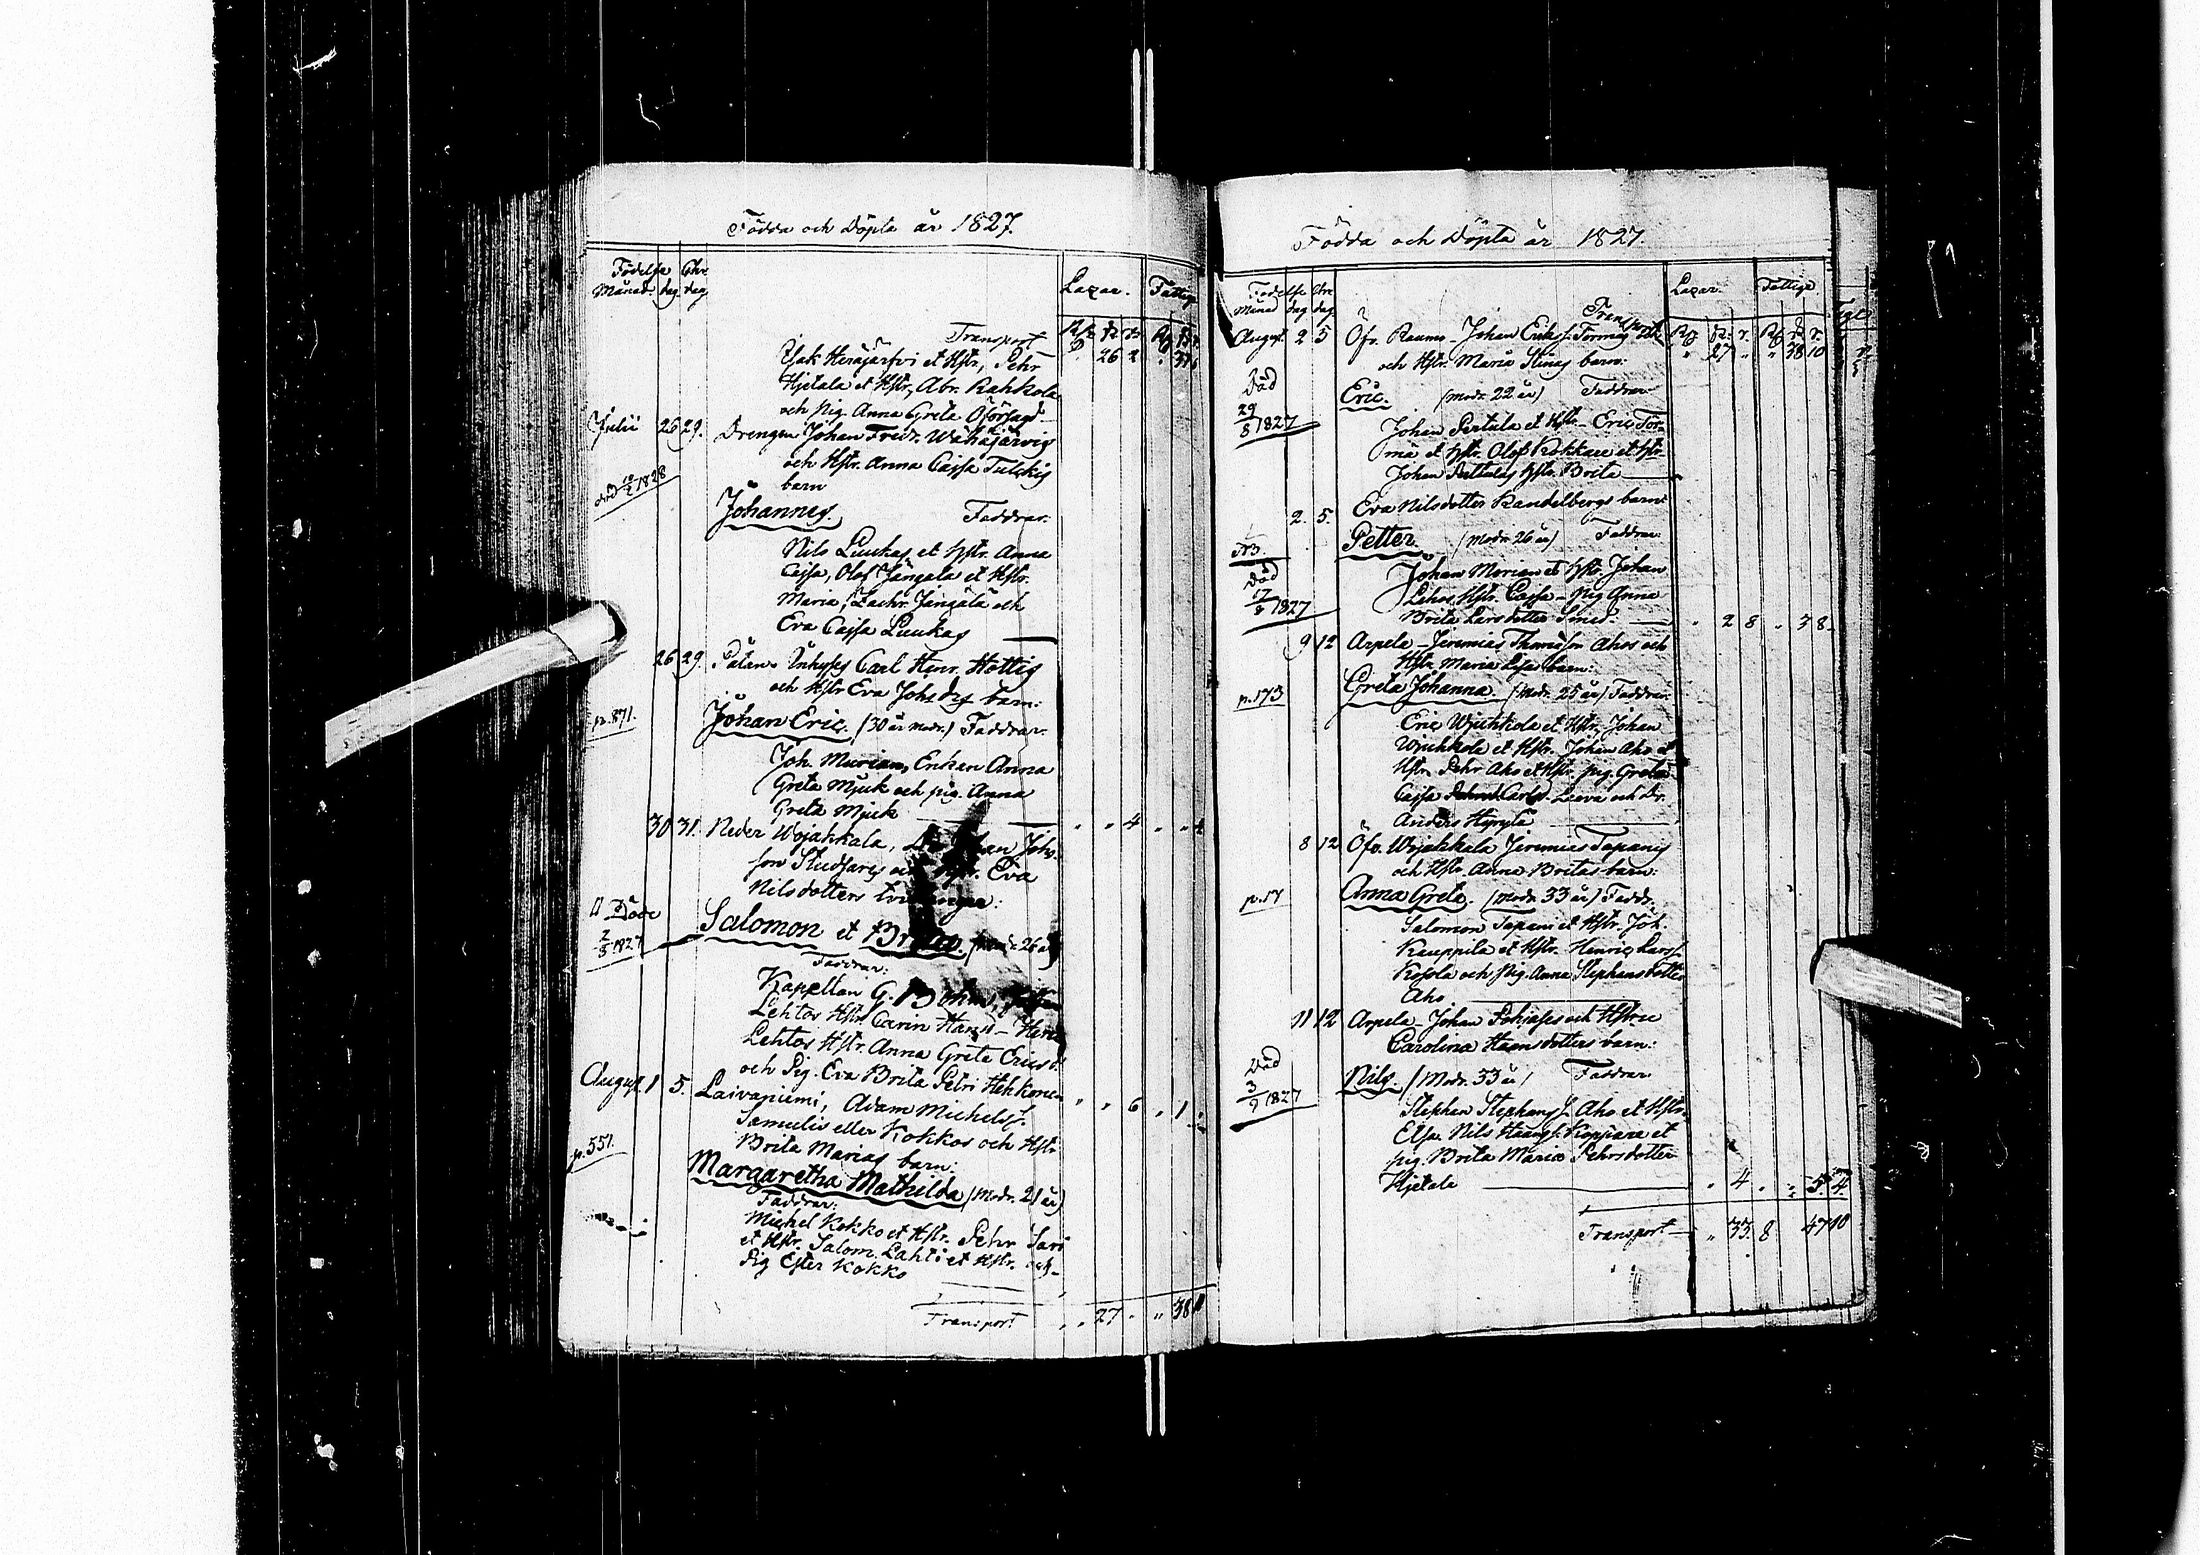 Födda och Döpta år 1827.
Födelse Chr.
Månad dag dag
Lazar. Fattige
Transport
Isak Heräjärfvi et Hstr, Pehr
26 2
Hjetala et Hstr, Abr. Rahkola
och pig. Anna Greta
Julii 26 29. Drengen Johan Fredr. Wähäjärvis
och Hstr. Anna Cajsa Tulckis
död 1828
barn
Johannes. Faddrar.
Nils Luukas et Hstr. Anna
Cajsa, Olof Jängälä et Hstr.
Maria, Zachr. Jängälä och
Eva Cajsa Luukas
26 29. Inhyses Carl Henr. Hottis
och Hstr Eva Johsdrs barn:
p. 871. Johan Eric. (30 år modr.) Faddrar.
Joh. Murian, Enkan Anna
Greta Mjuk och pig. Anna
Greta Mjuk " " 4 " "
30 31. Neder Wojakkala, Johs
son Studjärfs och Hstr. Eva
Nilsdotters tvillingar:
Döde Salomon et (modr. 26 år)
2/8 1827 Faddrar:
Kapellan G.
Lehtos Hstr. Carin
Lehtos Hstr. Anna Greta Ericsd.
och Pig. Eva Brita Petri Hehkonen " " 6 " 1
August. 1 5. Laivaniemi, Adam Michelss.
Samulis eller Kokkos och Hstr.
p. 551. Brita Marias barn:
Margaretha Mathilda (Modr. 21 år)
Faddrar:
Michel Kokko et Hstr. Pehr Sari
et Hstr. Salom. Lahti et Hstr. och
Pig Ester Kokko
Transport " " 27 " " 38
Födda och Döpta år 1827.
Födelse Chr.
Månad dag dag
Lazar. Fattige
Transport
August. 2 5 Öfv. Raumo Johan Erikss. Törmä
" 27 " " 38 10
och Hstr. Maria Stinas barn:
Död Eric. (modr. 22 år) Faddrar
29/8 1827 Johan Pertula et Hstr. Eric Tör-
mä et Hstr. Olof Rekkare et Hstr.
Johan Perttulas Hstr. Brita
2. 5. Eva Nilsdotter Randelbergs barn:
Petter. (modr. 26 år) Faddrar:
Död Johan Morian et Hstr. Johan
17/8 1827 Lehos Hstr. Cajsa pig Anna
Brita Larsdotter " 2 8 " 3 8
9 12 Arpela Jeremias Thomasson Ahos och
Hstr. Maria barn:
p. 173 Greta Johanna. (Modr. 25 år) Faddrar.
Eric Wjuhkola et Hstr, Johan
Wjuhkola et Hstr. Johan Aho et
Hstr. Pehr Aho et Hstr. pig. Greta
Cajsa Carls. Leeva och Dr.
Anders Hyryla
8 12 Öfv. Wojakkala Jeremias Tapanis
och Hstr. Anna Britas barn:
p. 17 Anna Greta. (modr. 33 år) Faddr.
Salomon Tapani et Hstr. Joh.
Kauppila et Hstr. Henric Larss.
och Pig. Anna Stephansdotter
Aho
11 12 Arpela Johan och Hstru
Carolina Hansdotters barn:
Död Nils. (Modr. 33 år) Faddrar
3/9 1827 Stephan Stephans s. Aho et Hstr.
Elsa. Nils et
pig. Brita Maria Pehrsdotter
Hjetala " 4 " " 5 4.
Transport " 33 8 47 10